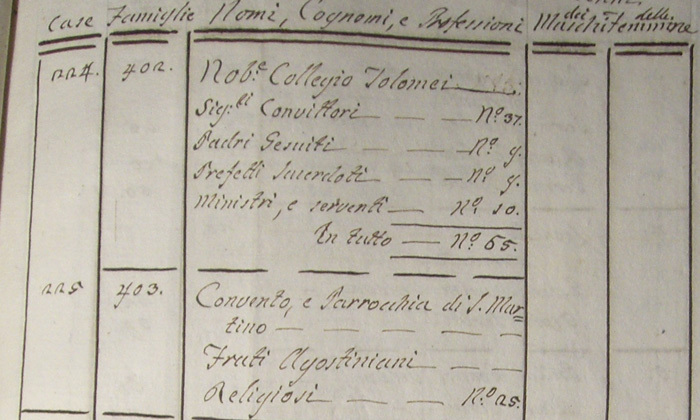 Case Famiglie Nomi, Cognomi, e Professioni dei Maschi delle Femmine
224. 402. Nob.e Collegio Tolomei
Sig.ri Convittori — — — N.o 37.
Padri Gesuiti — — — N.o 9.
Prefetti Sacerdoti — — — N.o 9.
Ministri, e serventi — N.o 10.
In tutto — N.o 65.
225 403. Convento, e Parrocchia di S. Mar=
tino — — — — — —
Frati Agostiniani — — —
Religiosi — — — N.o 25.